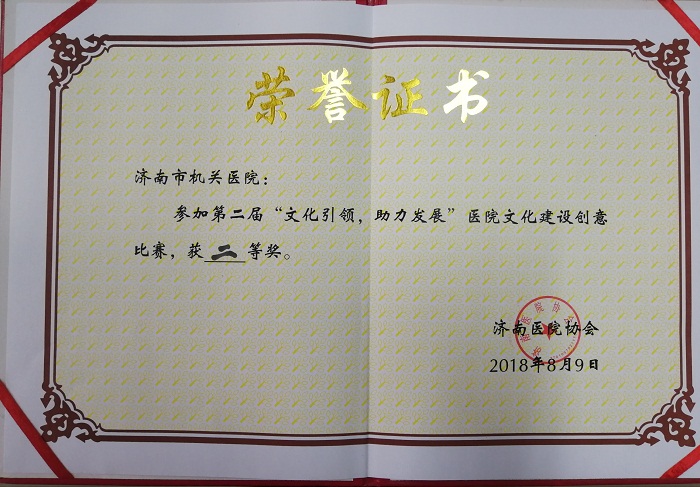 荣誉证书
济南市机关医院：
参加第二届“文化引领，助力发展”医院文化建设创意
比赛，获二等奖。
济南医院协会
2018年8月9日